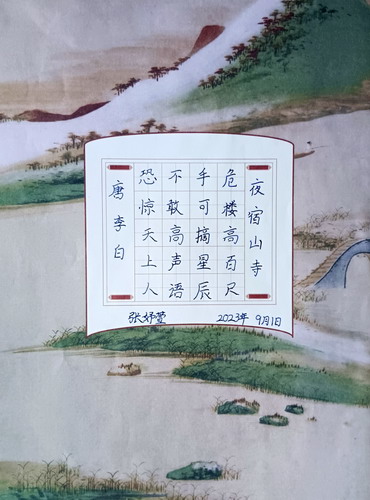 夜宿山寺
危楼高百尺
手可摘星辰
不敢高声语
恐惊天上人
唐李白
张妤萱
2023年 9月1日